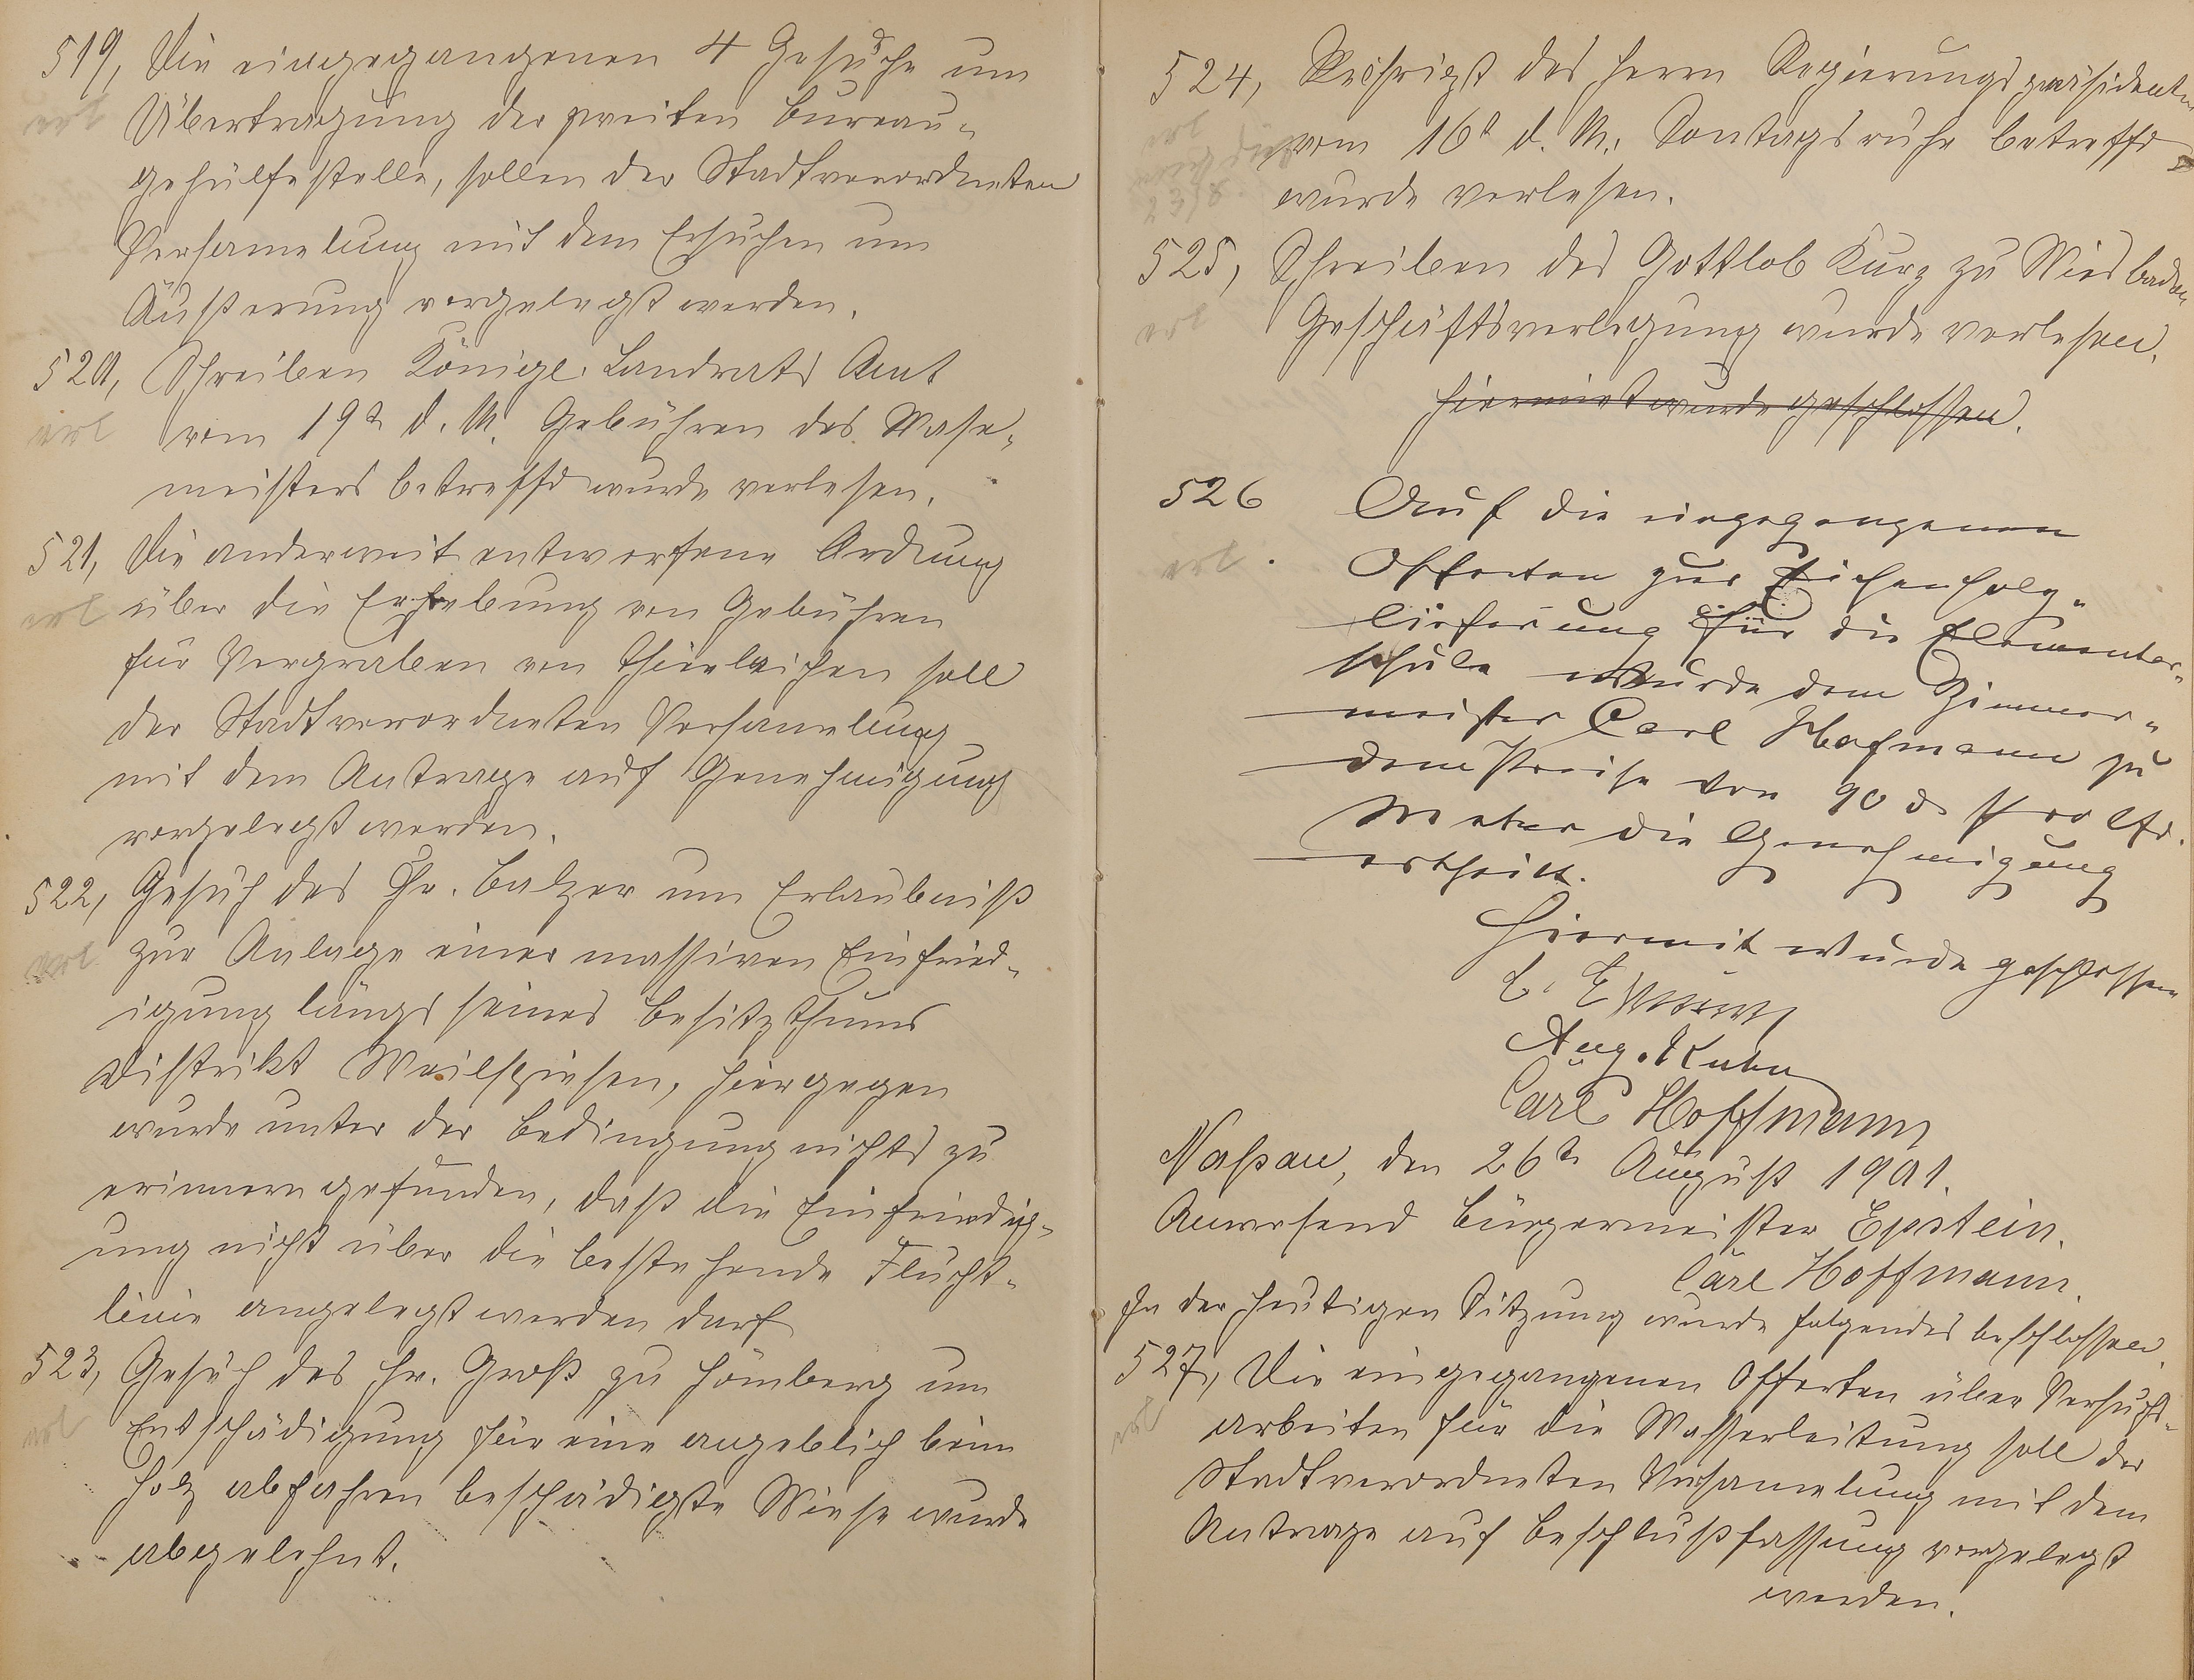 519, Die eingegangenen 4 Gesuche um
erl
Übertragung der zweiten Bureau-
gehülfestelle, sollen der Stadtverordneten
Versamelung mit dem Ersuchen um
Äußerung vorgelegt werden.
520, Schreiben Königl. Landrats Amt
erl vom 19t d. M. Gebühren des Wase-
meisters betreffd wurde verlesen.
521, Die anderweit entworfene Ordnung
erl über die Erhebung von Gebühren
für Vergraben von Thierleichen soll
der Stadtverordneten Versamelung
mit dem Antrage auf Genehmigung
vorgelegt werden.
522, Gesuch des Chr. Balzer um Erlaubniß
erl zur Anlage einer massiven Einfried-
igung längs seines Besitzthums
Distrikt Weilspiesen, hiergegen
wurde unter der Bedingung nichts zu
erinnern gefunden, daß die Einfriedig-
ung nicht über die bestehende Flucht-
linie angelegt werden darf
523, Gesuch des Hr. Groß zu Hömberg um
erl Entschädigung für eine angeblich beim
Holz abfahren beschädigte Wiese wurde
abgelehnt.
524, Rescript des Herrn Regierungspräsidenten
erl vom 16t d. M. Sontagsruhe betreffd
23/8. wurde verlesen.
525, Schreiben des Gottlob Kurz zu Wiesbaden
erl Geschäftsverlegung wurde verlesen.
Hiermiet wurde geschlossen.
526 Auf die eingegangenen
erl Offerten zur Eichenholz-
lieferung für die Elementar-
schule wurde dem Zimmer-
meister Carl Hofmann zu
dem Preise von 90 ₰ pro lfd.
Meter die Genehmigung
ertheilt.
Hiermit wurde geschlossen
Aug. Kuhn
Carl Hoffmann
Naßau, den 26t August 1901.
Anwesend Bürgermeister Epstein.
Carl Hoffmann.
In der heutigen Sitzung wurde folgendes beschlossen.
527, Die eingegangenen Offerten über Versuchs-
erl arbeiten für die Wasserleitung soll der
Stadtverordneten Versamelung mit dem
Antrage auf Beschlußfassung vorgelegt
werden.